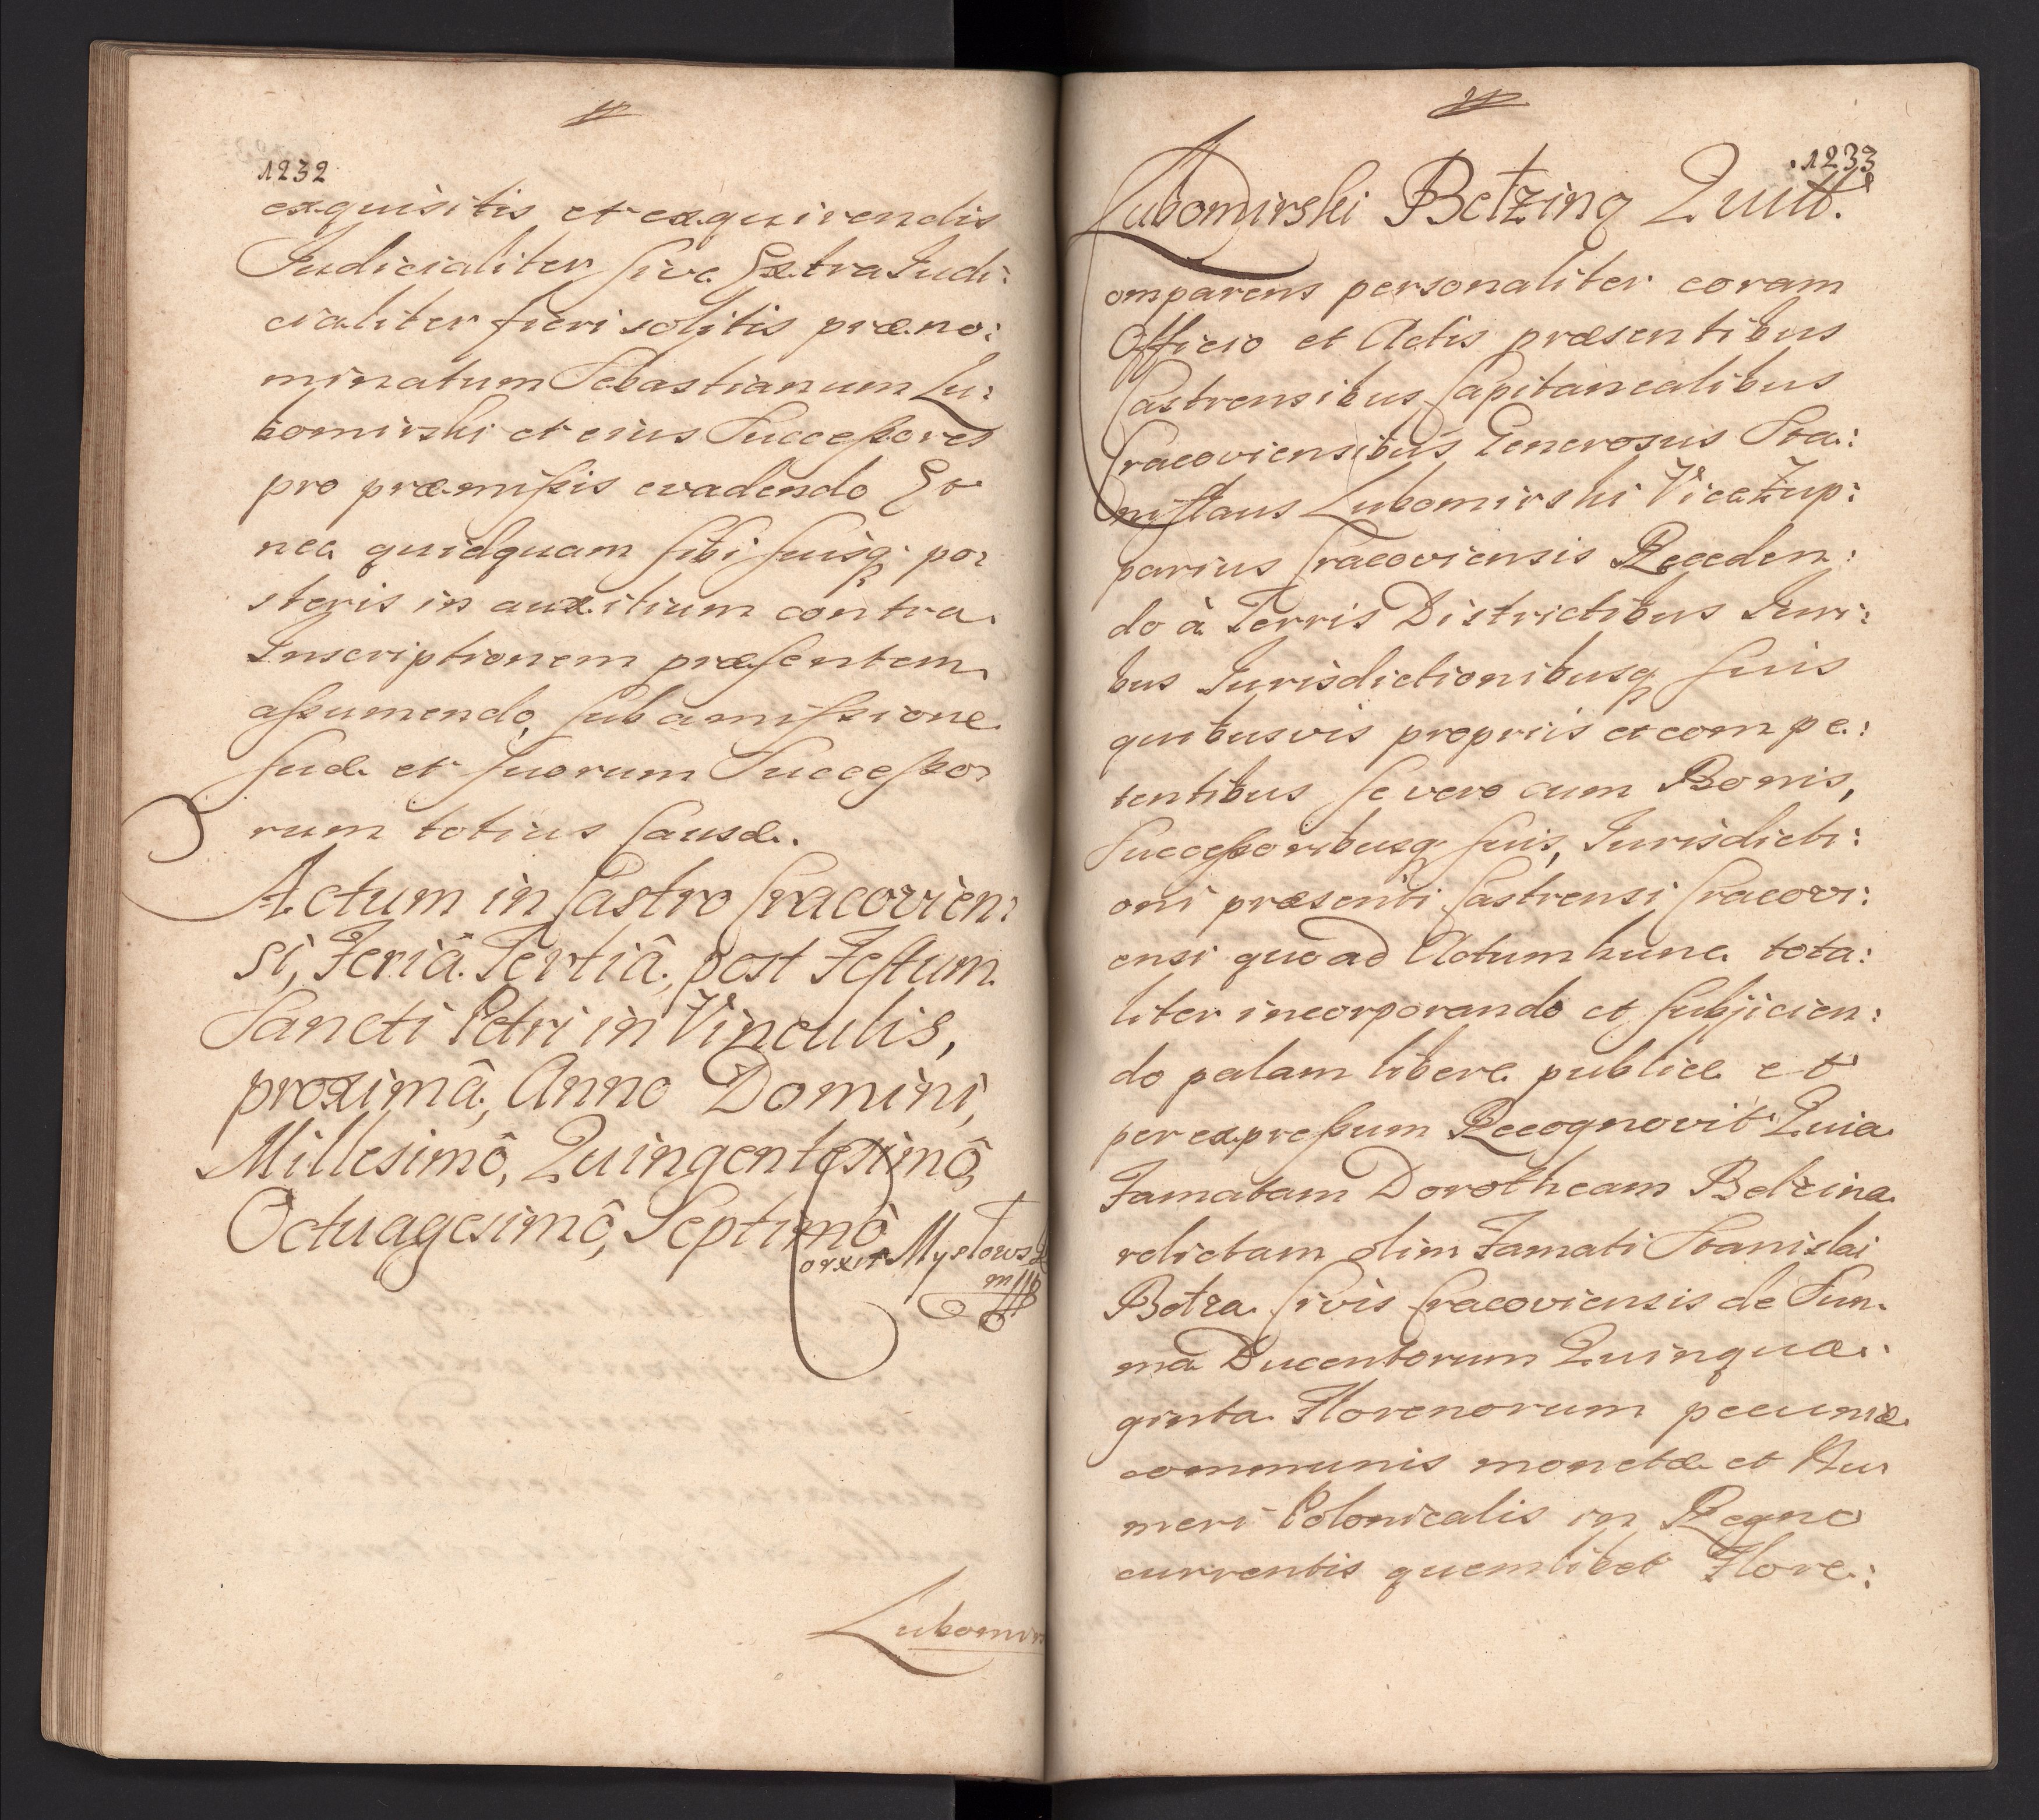 1232
exquisitis et exquirendis
Judicialiter sive ExtraJudi:
cialiter fieri solitis præno:
minatum Sebastianum Lu:
bomirski et eius Successores
pro præmissis evadendo Et
nec quidquam sibi suisq; po:
steris in auxilium contra
Inscriptionem præsentem
assumendo, sub amissione
suæ et suorum Successo:
rum totius Causæ.
Actum in Castro Cracovien:
si, Feriâ Tertiâ, post Festum
Sancti Petri in Vinculis,
proximâ, Anno Domini,
Millesimô, Quingentesimô,
Octuagesimô, Septimô
Mysłows
mpp
Lubomir
1233
Lubomirski Betzing Quitt.
Comparens personaliter coram
Officio et Actis præsentibus
Castrensibus Capitanealibus
Cracoviensibus Generosus Sta:
nislaus Lubomirski ViceZup:
parius Cracoviensis Receden:
do à Terris Districtibus Juri:
bus Jurisdictionibusq; suis
quibusvis propriis et compe:
tentibus se vero cum Bonis,
Successoribusq; suis, Jurisdicti:
oni præsenti Castrensi Cracovi:
ensi quoad Actum hunc tota:
liter incorporando et subjicien:
do palam libere publice et
per expressum Recognovit Quia
Famatam Dorotheam Betzina
relictam olim Famati Stanislai
Betza Civis Cracoviensis de Sum:
ma Ducentorum Quinqua:
ginta Florenorum pecuniæ
communis monetæ et Nu:
meri Polonicalis in Regno
currentis quemlibet Flore: